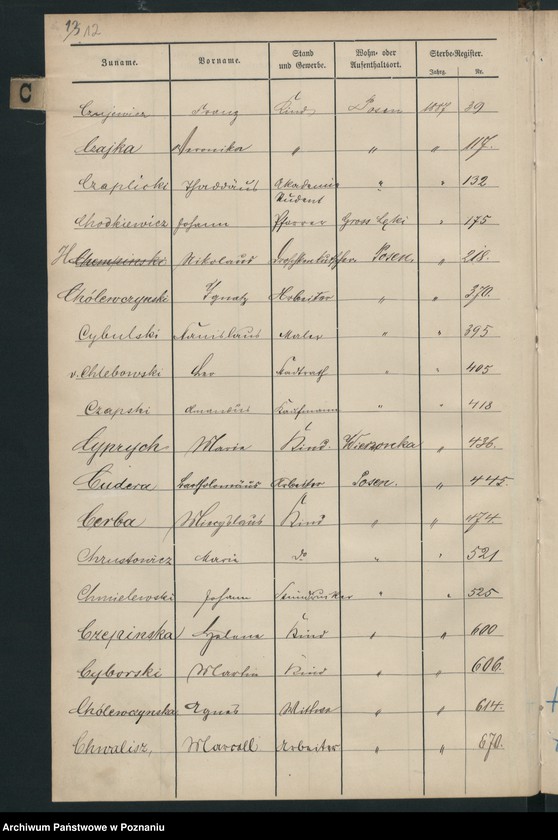 13 12
Zuname. Vorname. Stand und Gewerbe. Wohn- oder Aufenthaltsort. Sterbe-Register.
Jahrg. Nr.
C
Franz Kind Posen 1887 29
Czajka Veronika " " " 117.
Czaplicki Thaddäus Akademie " " 132
Student
Chodkiewicz Johann Pfarrer Gross Lęki " 175
H Chempinski Nikolaus Droschkenkutscher Posen " 218.
Chólewczynski Ignatz Arbeiter " " 370.
Cybulski Stanislaus Maler " " 395
v. Chlebowski Leo Stadtrath " " 405
Czapski Amandus Kaufmann " " 418
Cyprych Marie Kind. Wierzonka " 436.
Cudera Bartholomäus Arbeiter Posen. " 445.
Cerba Miecyslaus Kind " " 474
Chrustowicz Marie do " " 521
Chmielewski Johann Steindrucker " " 525
Czepinska Helene Kind " " 600
Cyborski Martin Kind " " 606.
Chólewczynska Agnes Wittwe " " 614.
Chwalisz, Marcell Arbeiter " " 670.
Archiwum Państwowe w Poznaniu